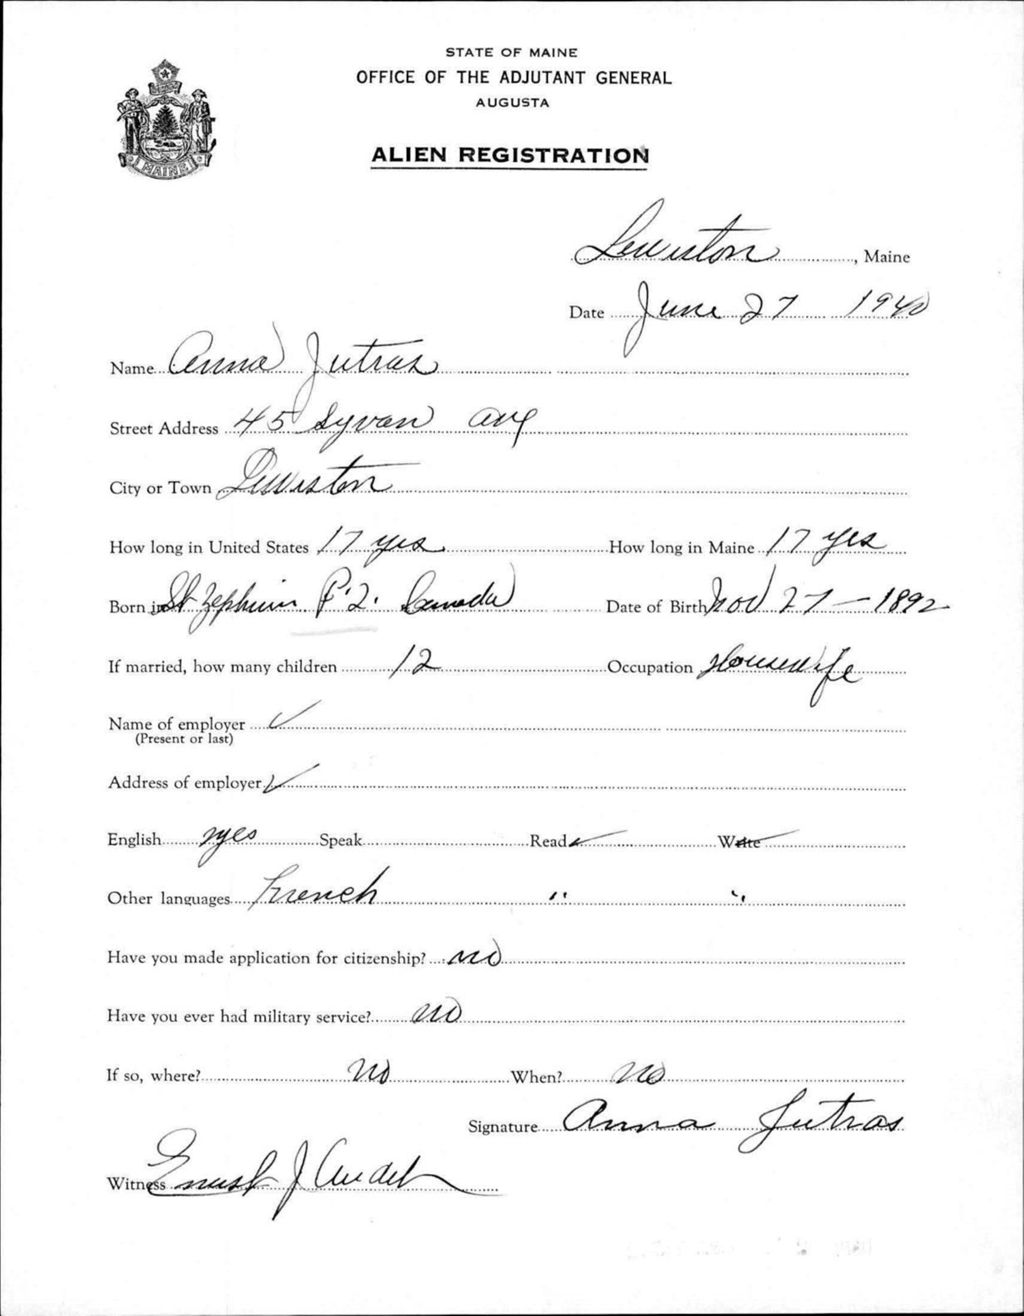 STATE OF MAINE
OFFICE OF THE ADJUTANT GENERAL
AUGUSTA
ALIEN REGISTRATION
MAINE
Lewiston, Maine
Date June 27 1940
Name Anna Jutras
Street Address 45 Syvan Ave
City or Town Lewiston
How long in United States 17 yrs How long in Maine 17 yrs
Born in St Zephirin P.Q. Canada Date of Birth Nov 27 - 1892
If married, how many children 12 Occupation Housewife
Name of employer ✓
(Present or last)
Address of employer ✓
English yes Speak Read ✓ Write
Other languages French " "
Have you made application for citizenship? no
Have you ever had military service? no
If so, where? no When? no
Signature Anna Jutras
Witness Ernest J Audet